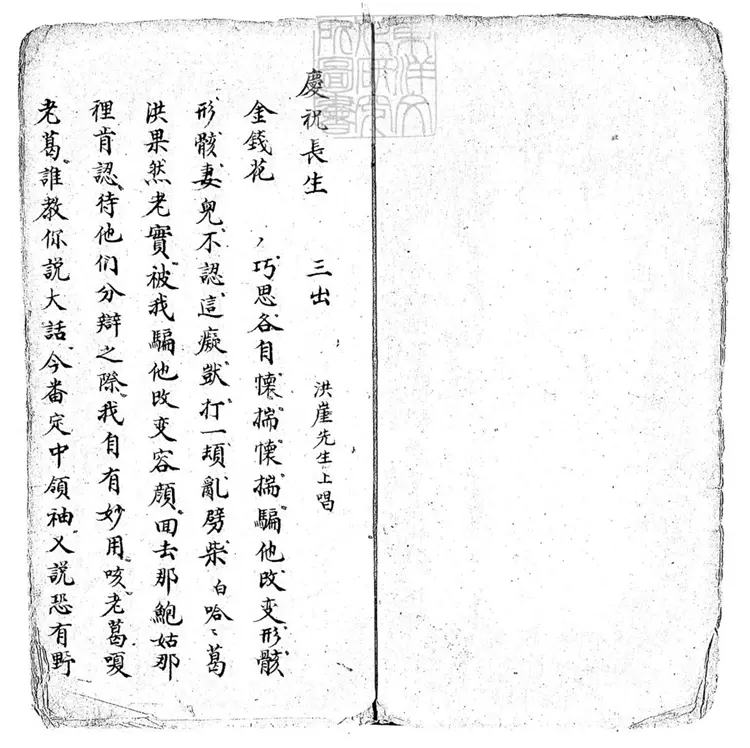 東洋文
化研究
所圖書
慶祝長生 三出 洪崖先生上唱
金錢花 巧思各自懷揣懷揣騙他改变形骸
形骸妻兒不認這癡獃打一頓亂劈柴 白哈〻葛
洪果然老實被我騙他改变容顔囬去那鮑姑那
裡肯認待他們分辯之際我自有妙用咳老葛嗄
老葛誰教你説大話今番定中領袖又説恐有野